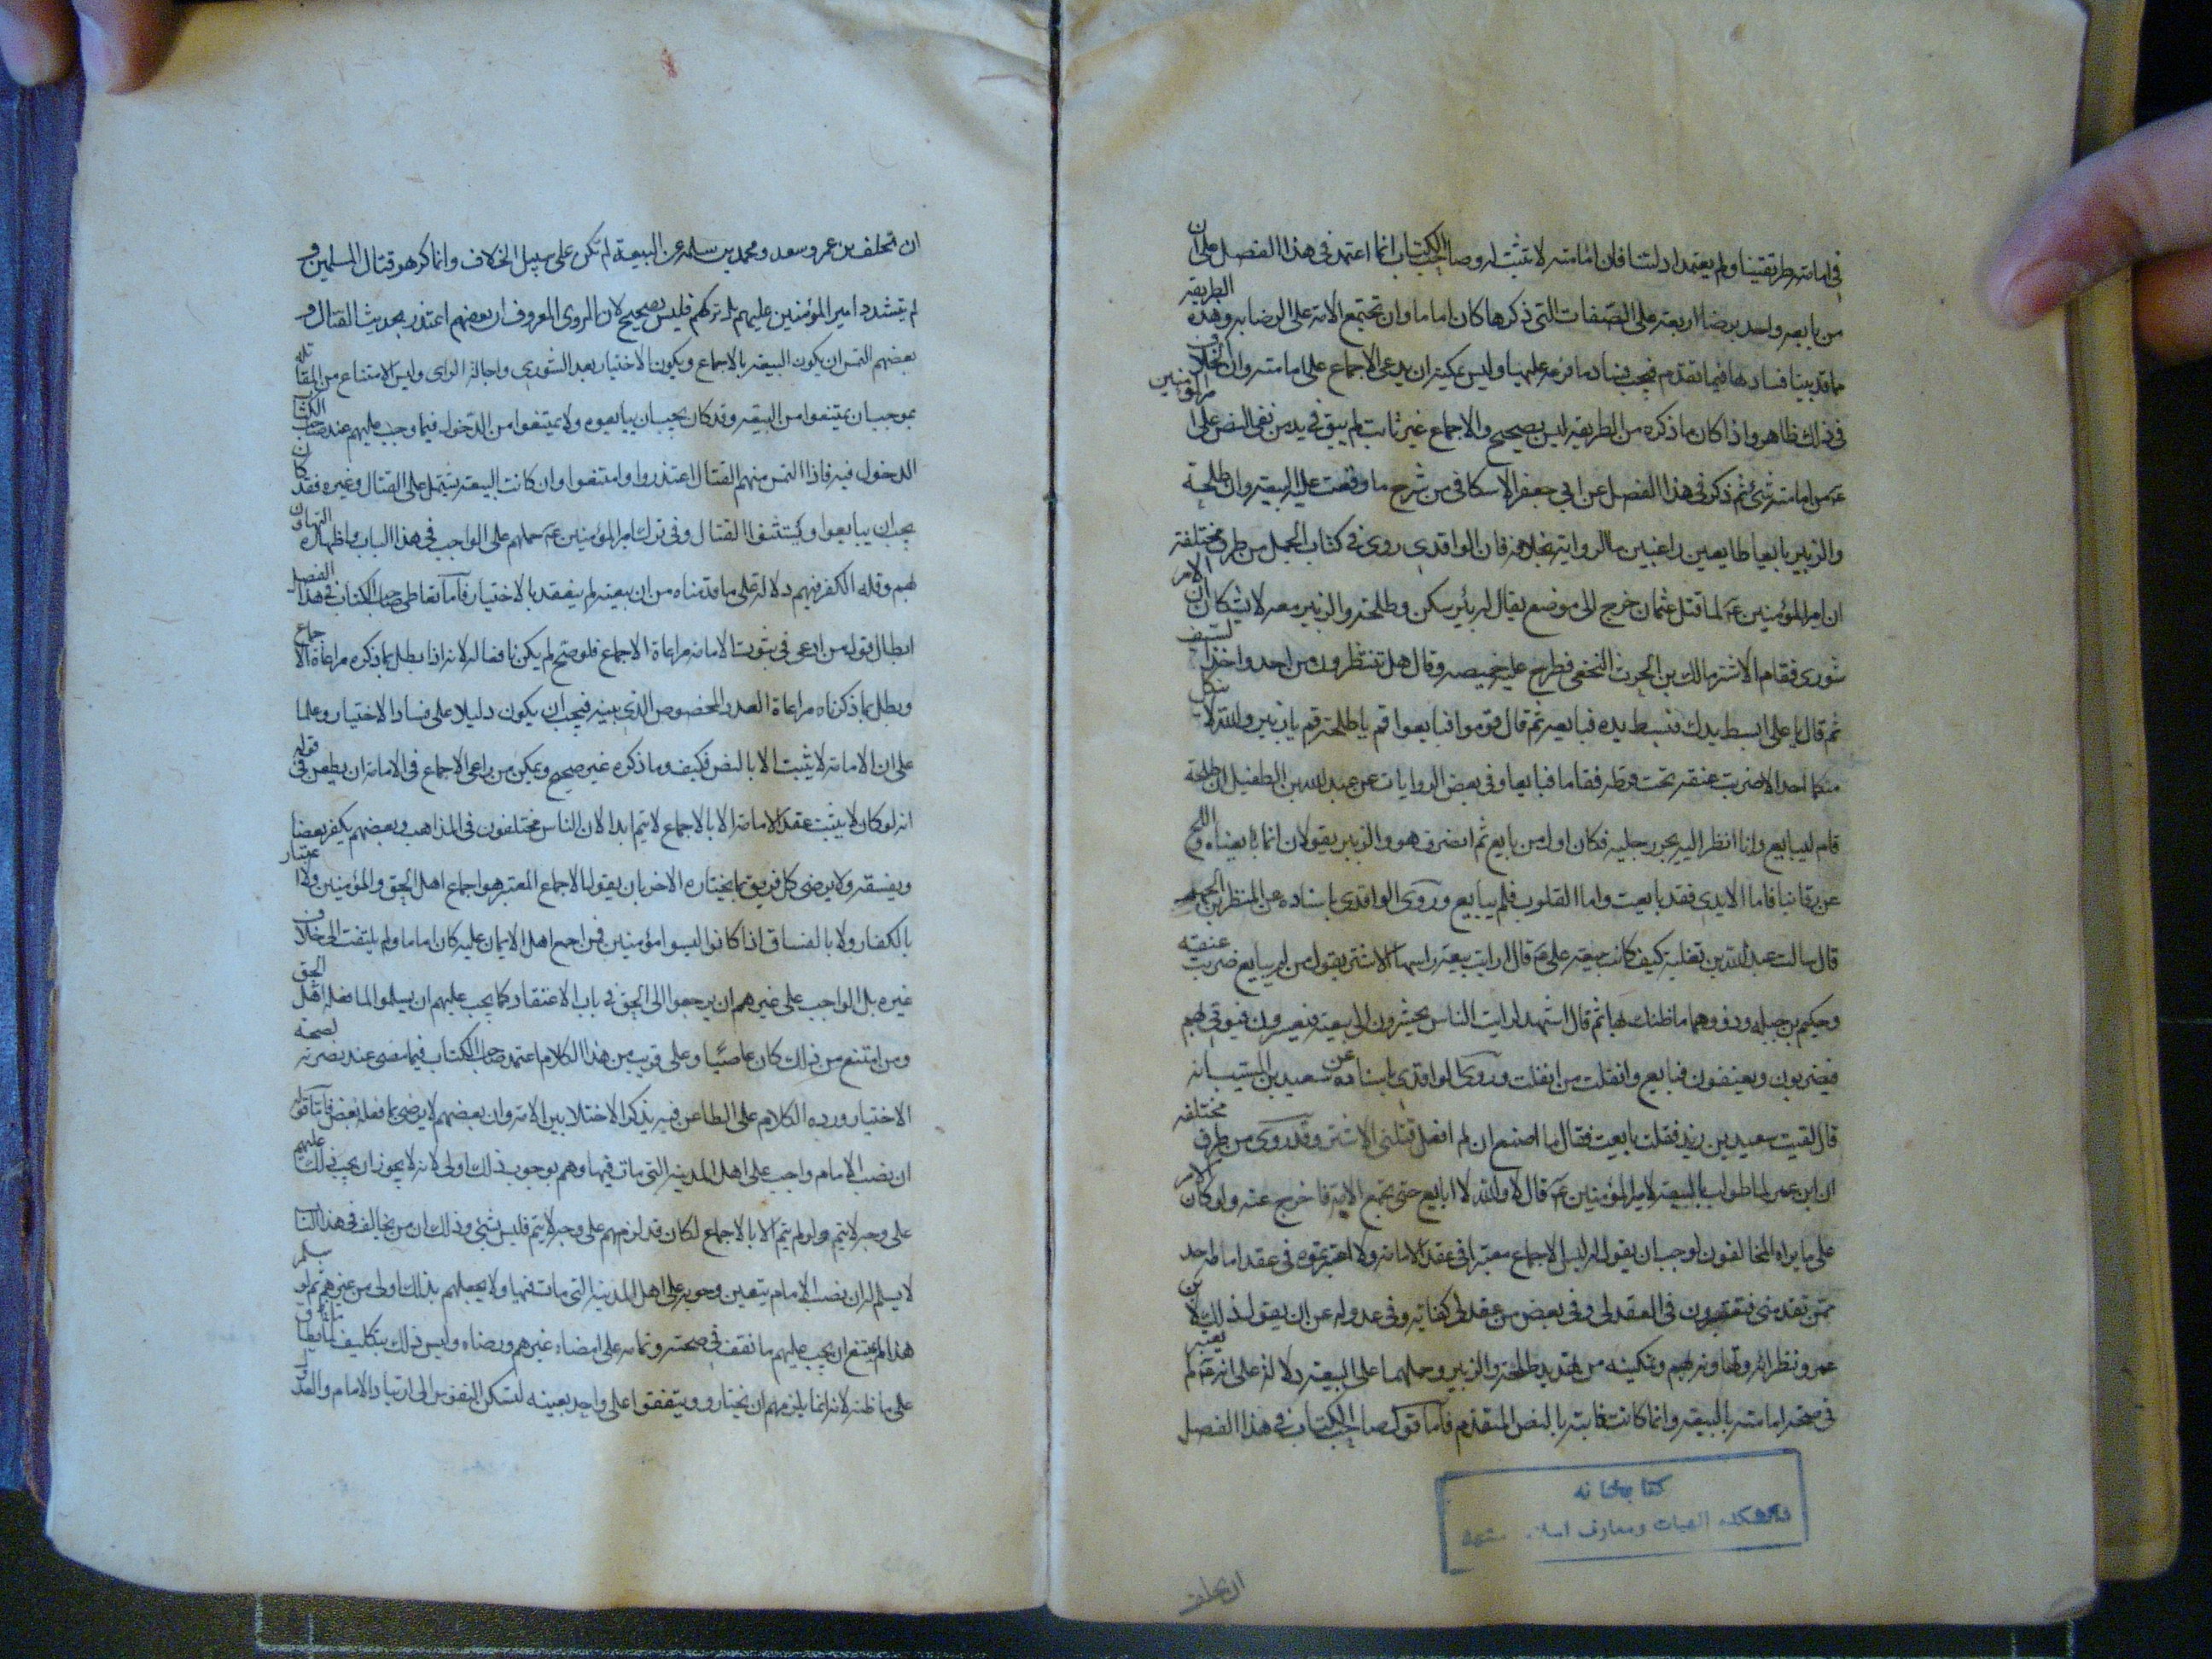 في امامته طريقتنا ولم يعتمد ادلتنا فان امامته لا تثبت له وصاحب الكتاب انما اعتمد في هذا الفصل على ان
من بايعه واحد برضا اربعة على الصفات التي ذكرها كان اماما وان تجتمع الامة على الرضا به وهذه الطريقة
مما قد بينا فسادها فيما تقدم فيجب فساد ما فرعه عليها وليس يمكنه ان يدعى الاجماع على امامته وان الخلاف
في ذلك ظاهر واذا كان ما ذكره من الطريقة ليس بصحيح والاجماع غير ثابت لم يبق في يد من نفى النص على امير المؤمنين
عم من امامته شئ ثم ذكر في هذا الفصل عن ابي جعفر الاسكافي من شرح ما وقعت عليه البيعة وان طلحة
والزبير بايعا طايعين راغبين ما الرواية بخلافه فان الواقدي روى في كتاب الجمل من طرق مختلفة
ان امير المؤمنين عم لما قتل عثمان خرج الى موضع يقال له بئر سكن وطلحة والزبير معه لا يشكان ان الامر
شورى فقام الاشتر مالك بن الحرث النخعي فطرح عليه خميصه وقال هل تنتظرون من احد واخذ السيف
ثم قال يا علي ابسط يدك فبسط يده فبايعه ثم قال قوموا فبايعوا قم يا طلحة قم يا زبير والله لا ينكل
منكما احد الا ضربت عنقه تحت قرطه فقاما فبايعا وفي بعض الروايات عن عبد الله بن الطفيل ان طلحة
قام ليبايع وانا انظر اليه يجر رجليه فكان اول من بايع ثم انصرف هو والزبير يقولان انما بايعناه واللج
على رقابنا فاما الايدي فقد بايعت واما القلوب فلم يبايع وروى الواقدي باسناده عن المنظر بن الجهم
قال سالت عبد الله بن تغلبة كيف كانت بيعة علي عم قال رايت بيعة راسها الاشتر يقول من لم يبايع ضربت عنقه
وحكيم بن جبلة وذووهما ما ظنك بها ثم قال اشهد لرايت الناس يحشرون الى بيعته فيعسرون فيوتى بهم
فيضربون ويعسفون فبايع وانفلت من انفلت وروى الواقدي باسناده عن سعيد بن المسيب انه
قال لقيت سعيد بن زيد فقلت بايعت فقال ما اصنع ان لم افعل قتلني الاشتر وقد روى من طرق مختلفة
ان ابن عمر لما طولب بالبيعة لامير المؤمنين عم قال لا والله لا ابايع حتى تجتمع الامة فاخرج عنه ولو كان الامر
على ما يراه المخالفون لوجب ان يقول له ليس الاجماع معتبرا في عقد الامامة ولا اعتبرتموه في عقد امامة احد
ممن تقدمني فتعتبرون في العقد لي وفي بعض من عقد لي كفاية وفي عدوله عن ان يقول ذلك لابن
عمر ونظرائه وتهاونه بهم وتمكينه من تهديد طلحة والزبير وحملهما على البيعة دلالة على انه عم لم يعتبر
في صحة امامته بالبيعة وانما كانت ثابتة بالنص المتقدم فاما قول صاحب الكتاب في هذا الفصل
كتابخانه
دانشكده الهيات ومعارف اسلامى مشهد
ان تخلف
ان تخلف بن عمر وسعد ومحمد بن سلمة عن البيعة لم تكن على سبيل الخلاف وانما كرهو قتال المسلمين و
لم يتشدد امير المؤمنين عليهم بل تركهم فليس بصحيح لان المروى المعروف ان بعضهم اعتذر بحديث القتال و
بعضهم التمس ان يكون البيعة بالاجماع ويكون الاختيار بعد الشورى واجالة الراى وليس الامتناع من المقاتلة
بموجب ان يمتنعوا من البيعة وقد كان يجب ان يبايعوه ولا يمتنعوا من الدخول فيما وجب عليهم عند صاحب الكتاب
الدخول فيه فاذا التمس منهم القتال اعتذروا وامتنعوا وان كانت البيعة يشتمل على القتال وغيره فقد كان
يجب ان يبايعوا ويستثنوا القتال وفي ترك امير المؤمنين عم حملهم على الواجب في هذا الباب واظهاره التهاون
بهم وقلة الكفر فيهم دلالة على ما قدمناه من ان بيعته لم ينعقد بالاختيار فاما تعاطى صاحب الكتاب في هذا الفصل
ابطال قول من ادعى في ثبوت الامامة مراعاة الاجماع فلو صح لم يكن نافعا له لانه اذا بطل بما ذكره مراعاة الاجماع
وبطل بما ذكرناه مراعاة العدد المخصوص الذي بينه فيجب ان يكون دليلا على فساد الاختيار وعلما
على ان الامامة لا يثبت الا بالنص فكيف وما ذكره غير صحيح ويمكن من راعى الاجماع في الامامة ان يطعن في قوله
انه لو كان لا يثبت عقد الامامة الا بالاجماع لا يتم ابدا لان الناس مختلفون في المذاهب وبعضهم يكفر بعضا
ويفسقه ولا يرضى كل فريق بما يختاره الاخر بان يقول الاجماع المعتبر هو اجماع اهل الحق والمؤمنين ولا اعتبار
بالكفار ولا بالفساق اذا كانوا ليسوا مؤمنين فمن اجمع اهل الايمان عليه كان اماما ولم يلتفت الى خلاف
غيره بل الواجب على غيرهم ان يرجعوا الى الحق في باب الاعتقاد كما يجب عليهم ان يسلموا لما فعله اهل الحق
ومن امتنع من ذلك كان عاصيا وعلى قريب من هذا الكلام اعتمد صاحب الكتاب فيما مضى عند نصرته لصحة
الاختيار ورده الكلام على الطاعن فيه بذكر الاختلاف بين الامة وان بعضهم لا يرضى بما فعله بعض فاما قوله
ان نصب الامام واجب على اهل المدينة التي مات فيها وهم بوجوب ذلك اولى لانه لا يجوز ان يجب ذلك عليهم
على وجه لا يتم ولو لم يتم الا بالاجماع لكان قد لزمهم على وجه لا يتم فليس بشئ وذلك ان من يخالف في هذا الباب
لا يسلم له ان نصب الامام يتعين وجوبه على اهل المدينة التي مات فيها ولا يجعلهم بذلك اولى من غيرهم ثم لو سلم
هذا لم يمتنع ان يجب عليهم ما تقف في صحته وتمامه على امضاء غيرهم ورضاه وليس ذلك بتكليف لما لا يطاق
على ما ظنه لانه انما يلزمهم ان يختارو ويتفقوا على واحد بعينه لتسكن النفوس الى ارتياد الامام والعدول